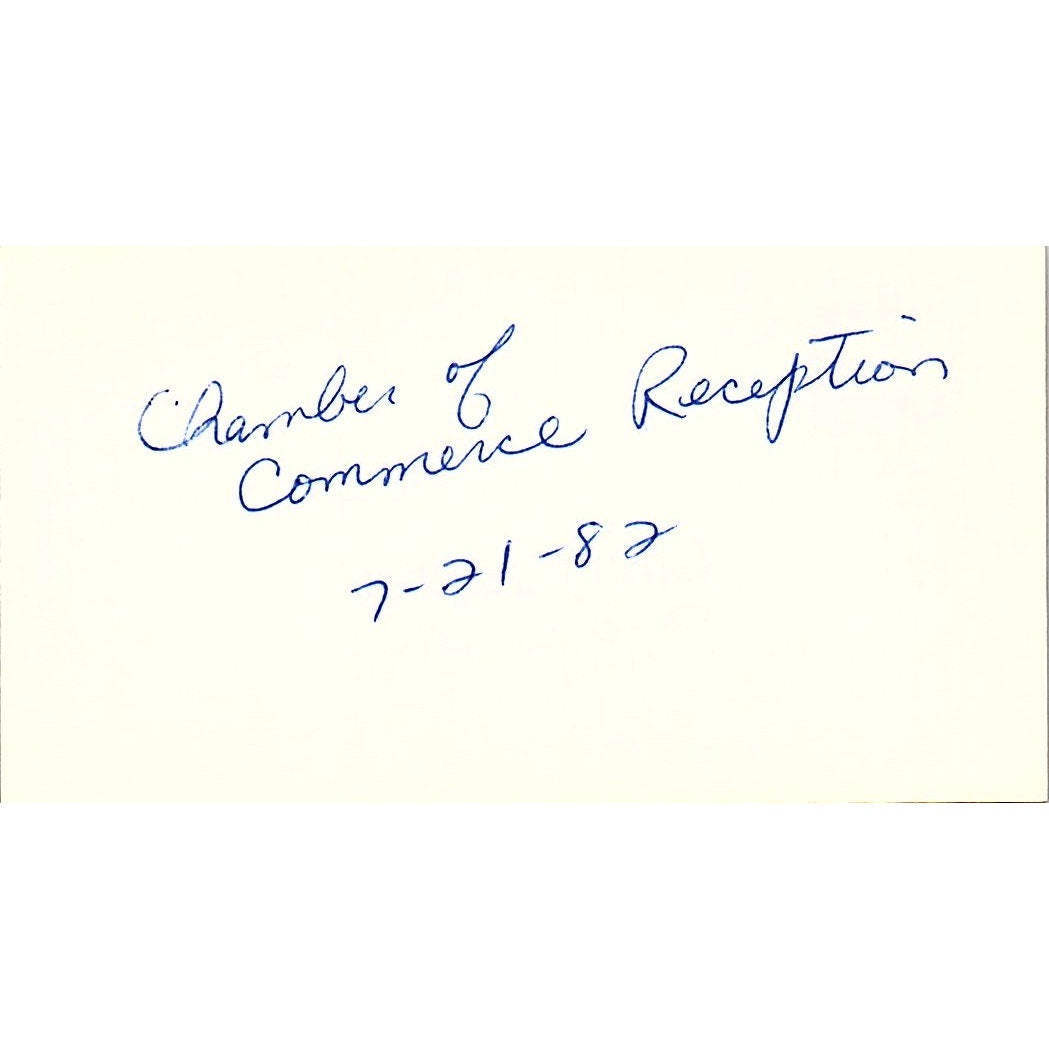 Chamber of
Commerce Reception
7-21-82